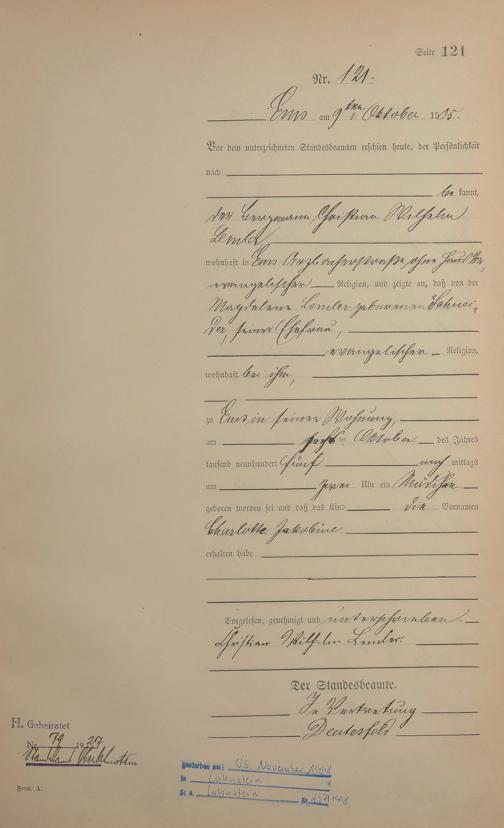 Seite 121
Nr. 121.
Ems am 9ten Oktober 1905.
Vor dem unterzeichneten Standesbeamten erschien heute, der Persönlichkeit
nach
be kannt,
der Bergmann Christian Wilhelm
Lemler
wohnhaft in Ems Arzbacherstraße ohne Haus Nr,
evangelischer Religion, und zeigte an, daß von der
Magdelene Lemler geborenen Schnei-
der, seiner Ehefrau,
evangelischer Religion,
wohnhaft bei ihm,
zu Ems in seiner Wohnung,
am sechsten Oktober des Jahres
tausend neunhundert fünf nach mittags
um zwei Uhr ein Mädchen
geboren worden sei und daß das Kind die Vornamen
Charlotte Jakobine
erhalten habe.
Vorgelesen, genehmigt und unterschrieben.
Christian Wilhelm Lemler.
Der Standesbeamte.
In Vertretung
H. Geheiratet
Nr. 79 1927
Standesamt Oberlahnstein
Form. A.
gestorben am: 03. November 1998
in Lahnstein
St. A. Lahnstein Nr. 1998